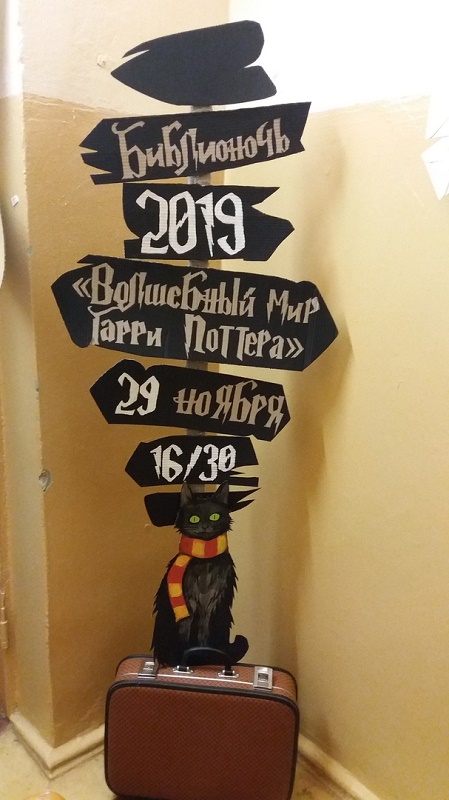 Библионочь
2019
«Волшебный мир
Гарри Поттера»
29 ноября
16/30